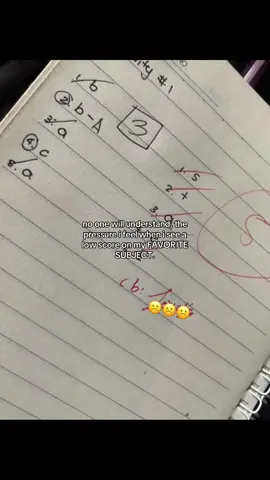 ity #1
1. b
2. b - A
3. a
4. c
5. a
3
1. s
2. x
3. a
no one will understand, the
pressure I feel when I see a
low score on my FAVORITE
SUBJECT.
cb:
☹️☹️☹️